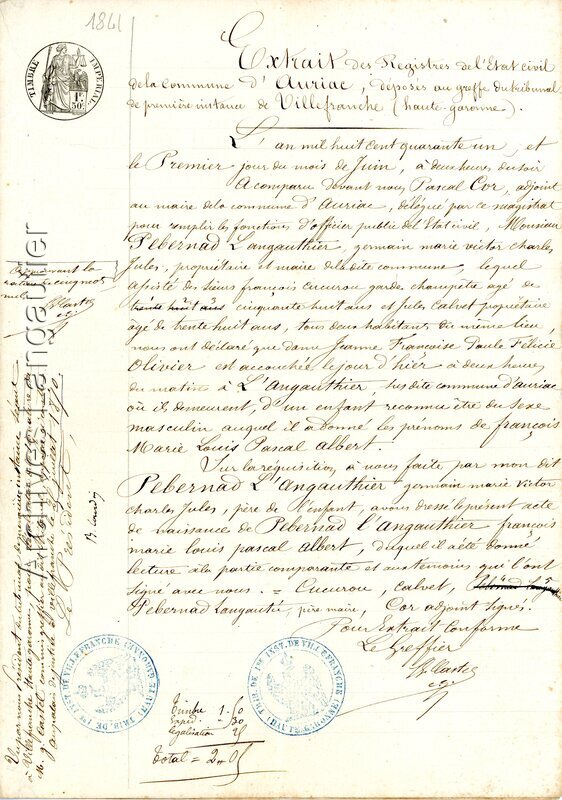 1841
TIMBRE IMPERIAL
1F. 50C.
Extrait des Registres de l'Etat civil
de la commune d'Auriac, déposés au greffe du tribunal
de première instance de Villefranche (haute-garonne).
L'an mil huit cent quarante un, et
le Premier jour du mois de Juin, à deux heures du soir
A comparu devant nous Pascal Cor, adjoint
au maire de la commune d'Auriac, délégué par ce magistrat
pour remplir les fonctions d'officier public de l'Etat civil, Monsieur
Pebernad L'angauthier, germain marie victor charles
Jules, propriétaire et maire de la dite commune, lequel
assisté des sieurs françois cucurou garde champêtre agé de
trente huit ans cinquante huit ans et Jules Calvet propriétaire
agé de trente huit ans, tous deux habitants du même lieu,
nous ont déclaré que dame Jeanne Française Paule Félicie
Olivier est accouchée le jour d'hier à deux heures
du matin à L'Angauthier, susdite commune d'auriac
où il demeurent, d'un enfant reconnu être du sexe
masculin auquel il a donné les prénoms de françois
Marie Louis Pascal Albert.
Sur la réquisition à nous faite par mon dit
Pebernad L'Angauthier germain marie victor
charles Jules, père de l'enfant, avons dressé le présent acte
de naissance de Pebernad l'angauthier françois
marie louis pascal Albert, duquel il a été donné
lecture à la partie comparante et aux témoins qui l'ont
signé avec nous. = Cucurou, Calvet,
Pebernad Langautié, père maire, Cor adjoint signés.
Pour Extrait Conforme
Le Greffier
Timbre 1.50
Expéd. " 30
légalisation 25
Total = 2.05
TRIB. DE 1re INST. DE VILLEFRANCHE (HAUTE GARONNE)
TRIB. DE 1re INST. DE VILLEFRANCHE (HAUTE GARONNE)
Vu par nous Président du tribunal de première instance séant
à Villefranche
Le Président,